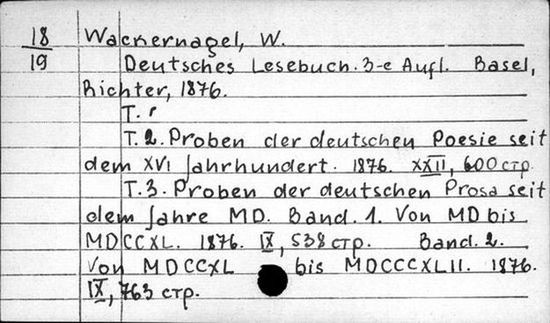 18 Wackernagel, W.
19 Deutsches Lesebuch. 3-e Aufl. Basel,
Richter, 1876.
T.
T. 2. Proben der deutschen Poesie seit
dem XVI Jahrhundert. 1876. XXII, 600 стр.
T. 3. Proben der deutschen Prosa seit
dem Jahre MD. Band. 1. Von MD bis
MDCCXL. 1876. IX, 538 стр. Band. 2.
Von MDCCXL bis MDCCCXLII. 1876.
IX, 763 стр.